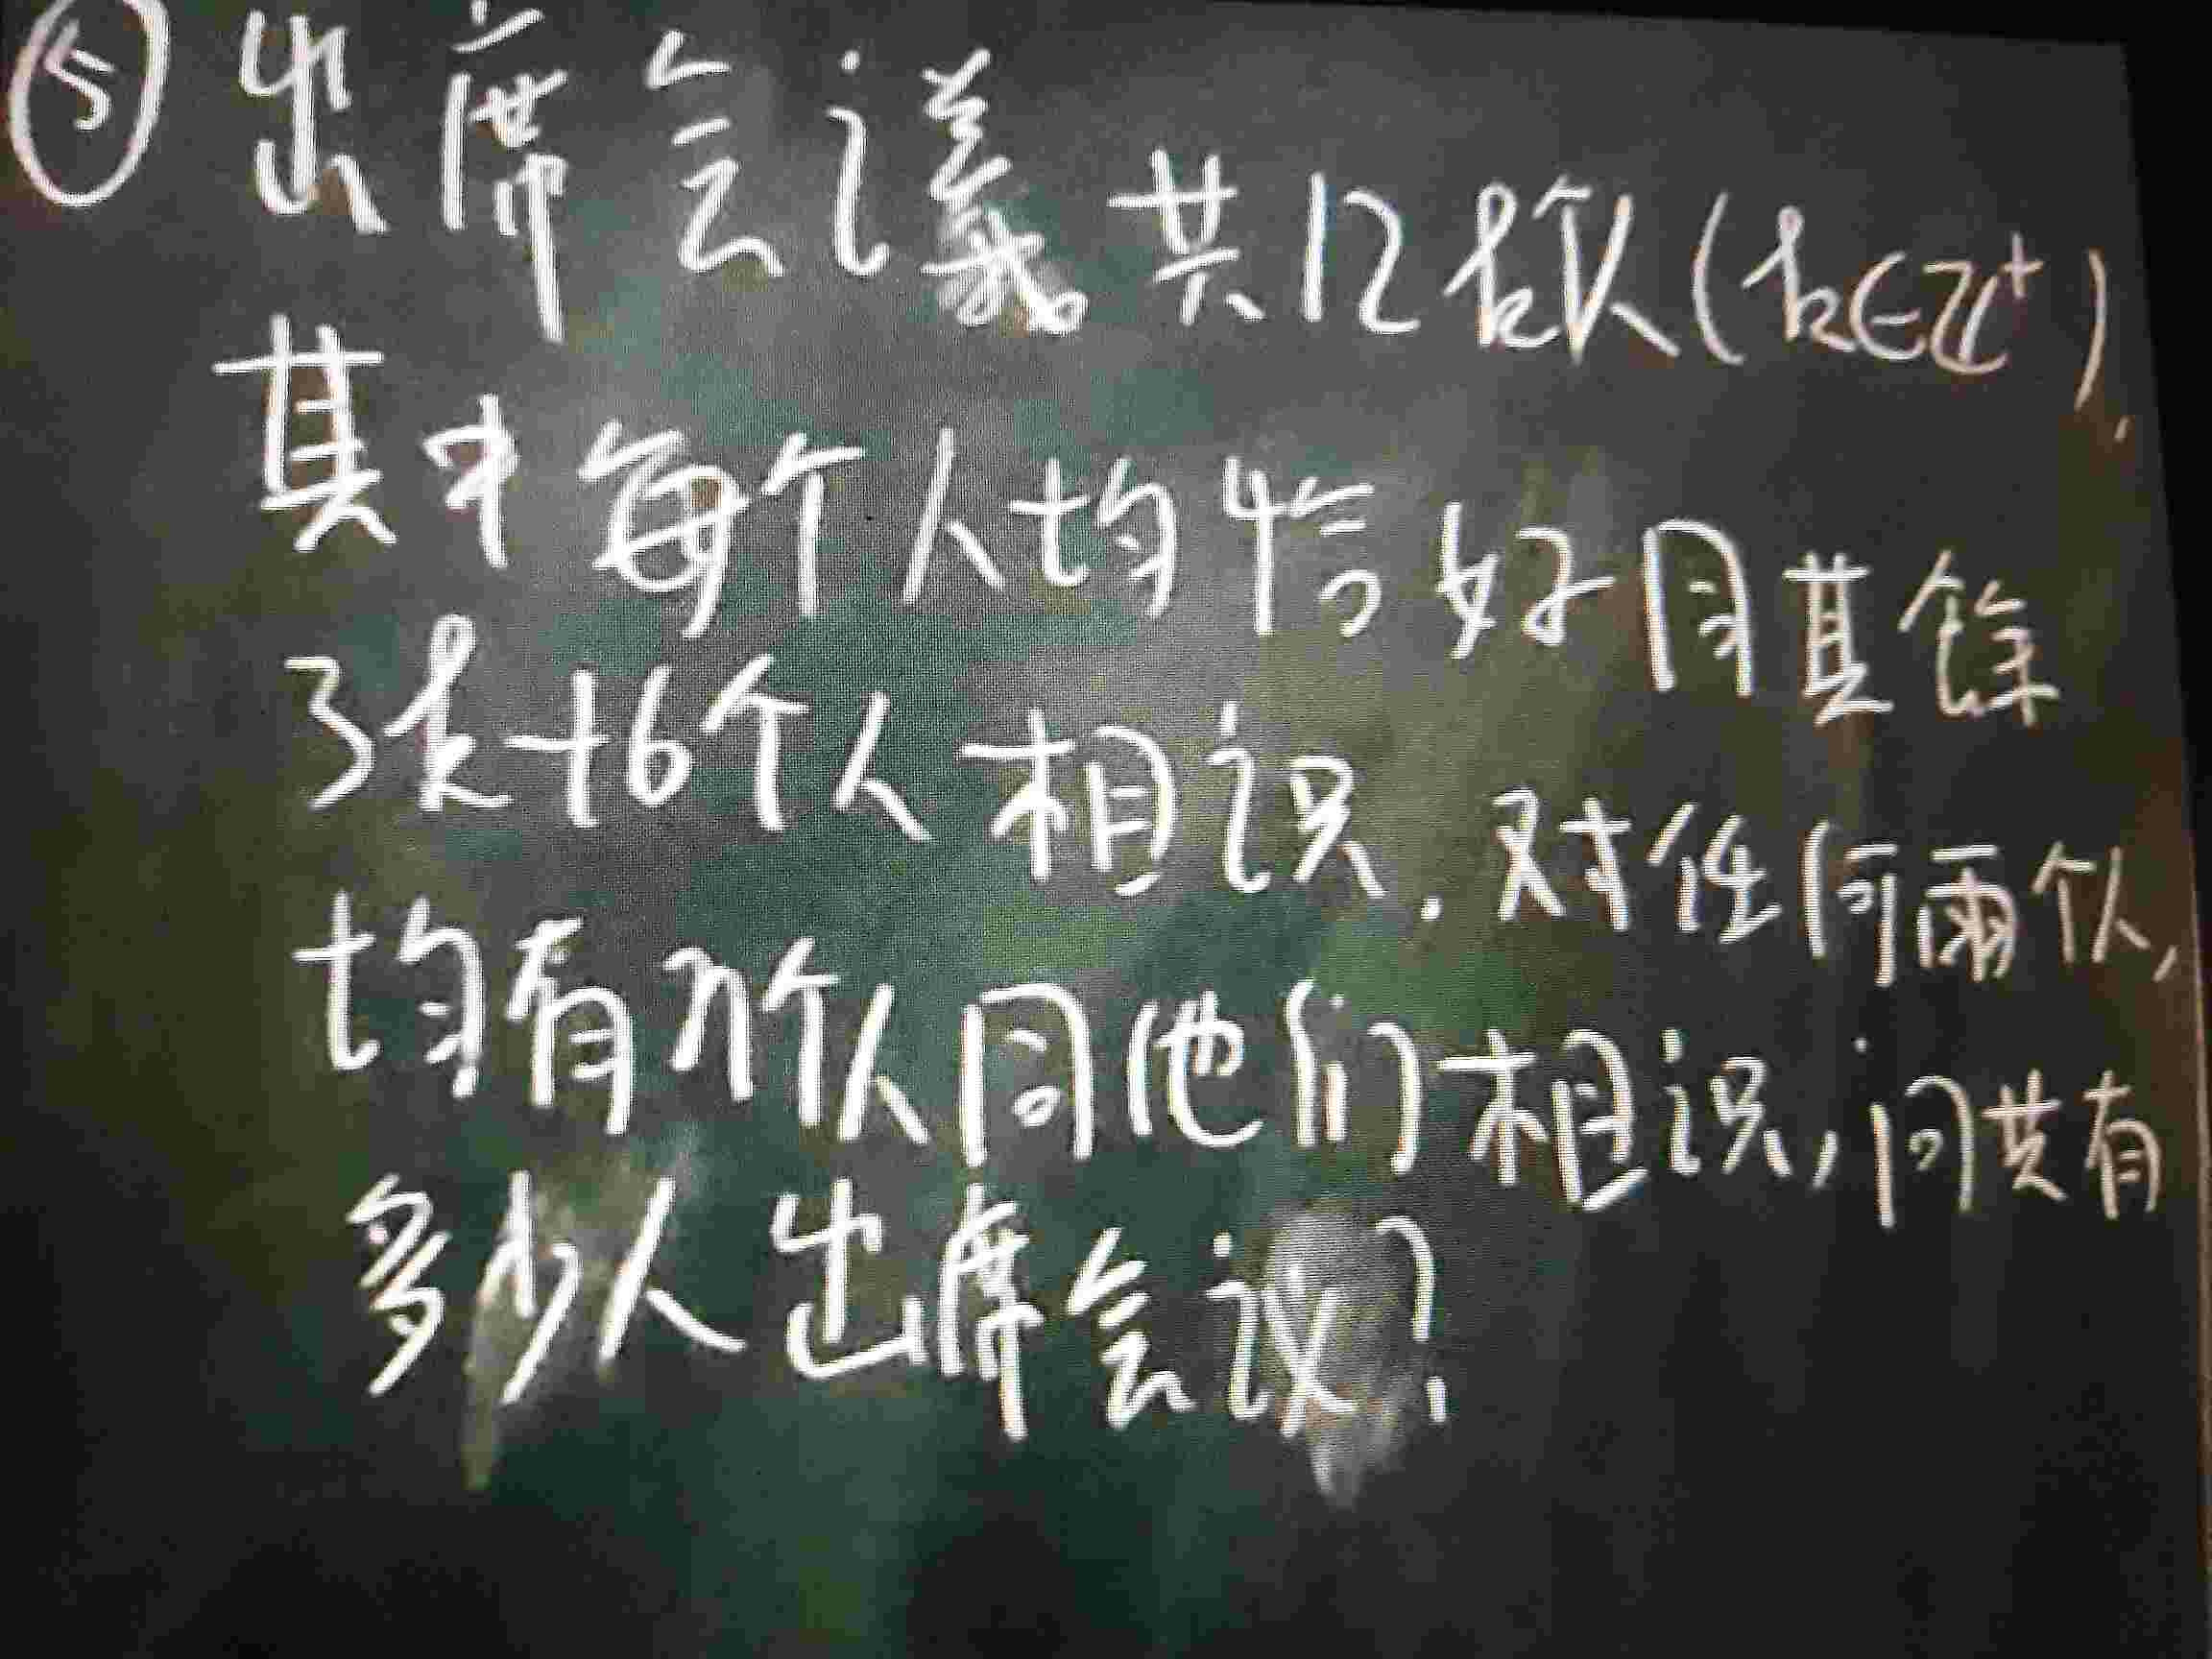 ⑤ 出席会议共12k人(k∈Z⁺),
其中每个人均恰好同其餘
3k+6个人相识.对任何兩个人,
均有n个人同他们相识,问共有
多少人出席会议?